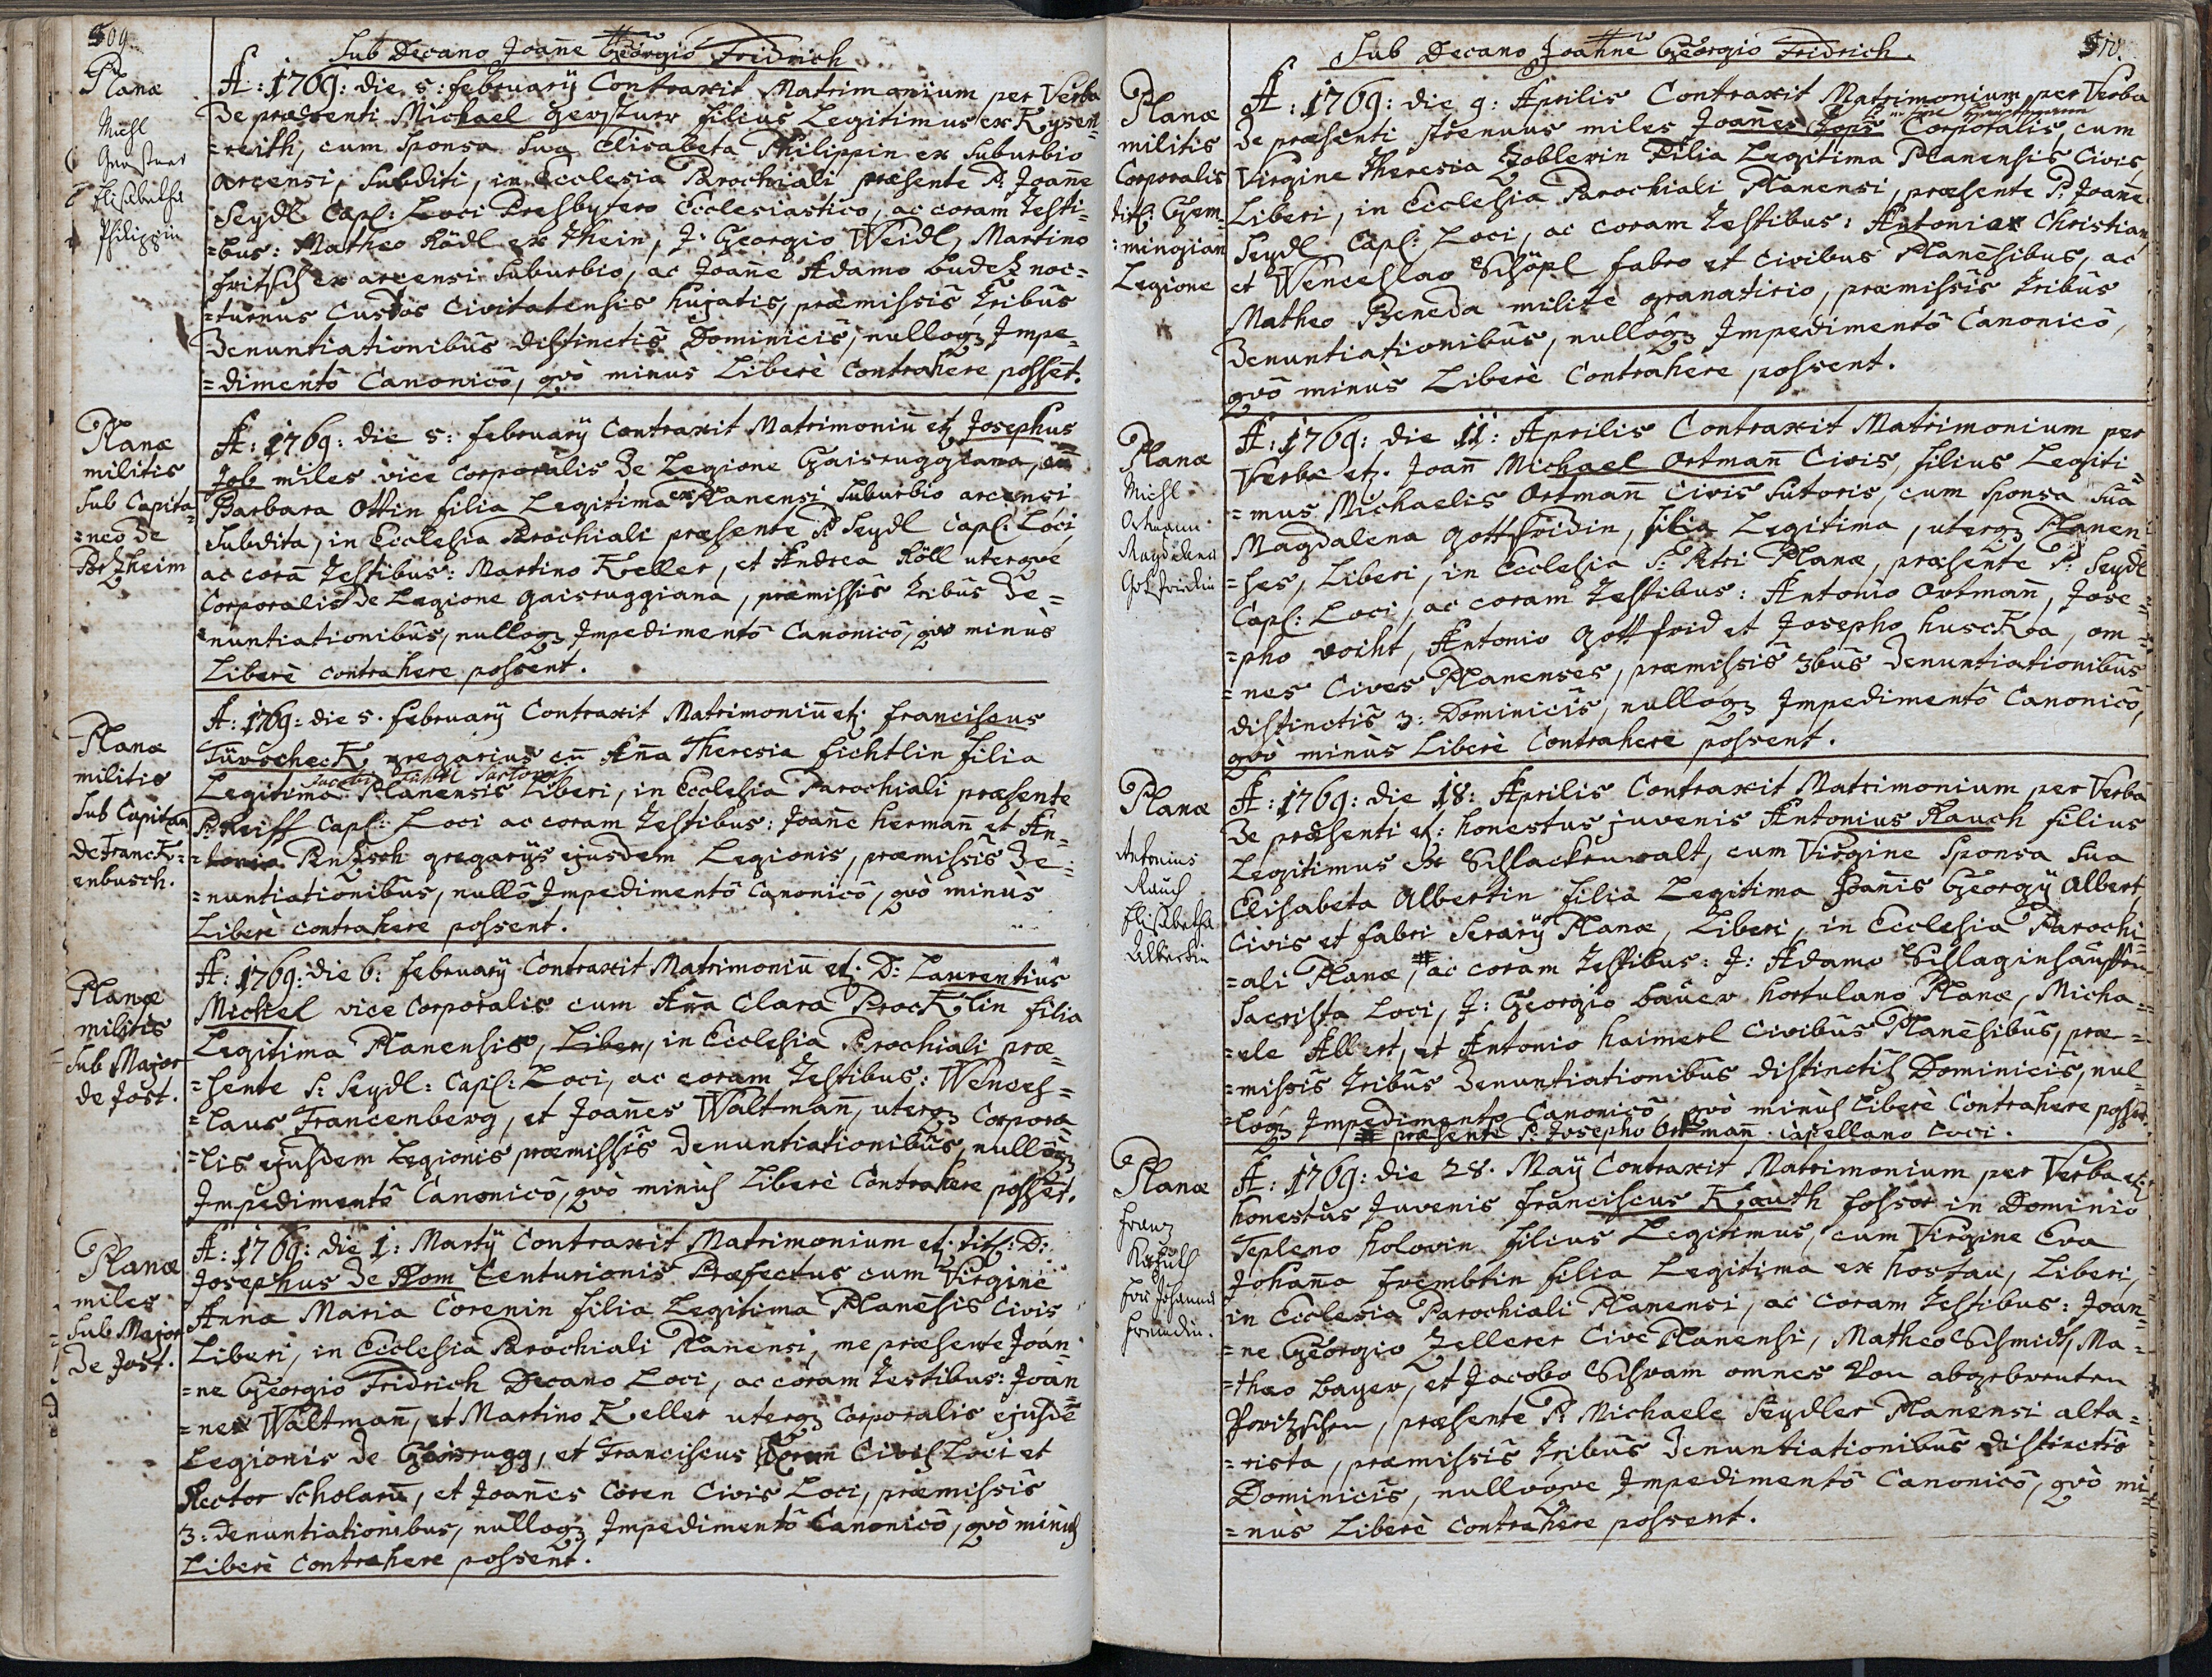 509.
Sub Decano Joanne Georgio Fridrich
Planæ
Michl
Elisabetha
Philippin
A: 1769: die 5: february Contraxit Matrimonium per Verba
De præsenti Michael gerstner filius Legitimus ex Kysen=
=reith, cum Sponsa Sua Elisabeta Philippin ex Suburbio
arcensi, Subditi, in Ecclesia Parochiali præsente P: Joanne
Seydl Capl: Loci Presbytero Ecclesiastico, ac coram Testi=
=bus: Matheo Rödl ex Thein, J: Georgio Weidl, Martino
fritsch ex arcensi Suburbio, ac Joanne Adamo Budetz noc=
=turnus Custos Civitatensis hujatis, præmissis tribus
Denuntiationibus distinctis Dominicis, nulloq3 Impe=
=dimento Canonico, quò minùs Liberè Contrahere possêt.
Planæ
militis
Sub Capita=
=neo de
Portzheim
A: 1769: die 5: february Contraxit Matrimoniū etz Josephus
Job miles vice corporalis De Legione Gaisruggiana, cū
Barbara Ottin filia Legitima ex Planensi Suburbio arcensi
Subdita, in Ecclesia Parochiali præsente P Seydl Capl: Loci,
ac corā Testibus: Martino Keller, et Andrea Röll uterque
Corporalis de Legione gaisruggiana, præmissis tribus De=
=nuntiationibus, nulloq3 Impedimento Canonico, quo minùs
Liberè contrahere possent.
Planæ
militis
Sub Capitan
de Franck=
enbusch.
A: 1769: die 5. february Contraxit Matrimoniū etz. franciscus
Türscheck gregarius cū Aña Theresia fichtlin filia
Legitima Planensis Liberi, in Ecclesia Parochiali præsente
P: Reiff Capl: Loci ac coram Testibus: Joanne hermañ et An=
=tonio Pntzsch gregarys ejusdem Legionis, præmissis De=
=nuntiationibus, nullo Impedimento Canonico, quò minùs
Liberè contrahere possent.
Planæ
militis
Sub Major
de Jost.
A: 1769: die 6: february Contraxit Matrimoniū etz. D: Laurentius
Michel vice Corporalis cum Aña Clara Procklin filia
Legitima Planensis, Liberi, in Ecclesia Parochiali præ=
=sente P: Seydl: Capl: Loci, ac coram Testibus: Wences=
=laus Francenberg, et Joañes Waltmañ, uterq3 Corpora=
=lis ejusdem Legionis præmissis denuntiationibus, nulloq3
Impedimento Canonico, quò minùs Liberè Contrahere possêt.
Planæ
miles
Sub Major
De Jost.
A: 1769: die 1: Marty Contraxit Matrimonium etz. titl: D:
Josephus De Rom Centurionis Præfectus cum Virgine
Anna Maria Corenin filia Legitima Planēsis Civis
Liberi, in Ecclesia Parochiali Planensi, me præsente Joan=
=ne Georgio Fridrich Decano Loci, ac coram Testibus: Joan=
=nes Waltmañ, et Martino Keller uterq3 Corporalis ejusdē
Legionis De Gaisrugg, et Franciscus Coren Civis Loci et
Rector Scholarū, et Joañes Coren Civis Loci, præmissis
3: Denuntiationibus, nulloq3 Impedimento Canonico, quò minùs
Liberè Contrahere possent.
510.
Sub Decano Joanne Georgio Fridrich.
Planæ
militis
Corporalis
titl: Gem=
=mingian
Legione
A: 1769: die 9: Aprilis Contraxit Matrimonium per Verba
De præsenti strenuus miles Joañes Corporalis, cum
Virgine Theresia Zoblerin Filia Legitima Planensis Civis,
Liberi, in Ecclesia Parochiali Planensi, præsente P: Joañe
Seydl Capl: Loci, ac coram Testibus: Antonier Christian,
et Wenceslao Schöpl fabro et Civibus Planēsibus, ac
Matheo Beneda milite granatirio, præmissis tribus
Denuntiationibus, nulloq3 Impedimento Canonico,
quò minùs Liberè Contrahere possent.
Planæ
Michl
Ortmann
Magdalena
Gottfridin
A: 1769: die 11: Aprilis Contraxit Matrimonium per
Verba etz. Joañ Michael Ortmañ Civis, filius Legiti=
=mus Michaelis Ortmañ Civis Sutoris, cum Sponsa Sua
Magdalena Gottfridin, filia Legitima, uterq3 Planen=
=ses, Liberi, in Ecclesia S: Petri Planæ, præsente P: Seydl
Capl: Loci, ac coram Testibus: Antonio Ortmañ, Jose=
=pho voiht, Antonio Gottfrid et Josepho husckra, om=
=nes Cives Planenses, præmissis 3bus Denuntiationibus
distinctis 3: Dominicis, nulloq3 Impedimento Canonico,
quò minùs Liberè Contrahere possent.
Planæ
Antonius
Rauch
Elisabetha
Albertin
A: 1769: die 18: Aprilis Contraxit Matrimonium per Verba
De præsenti etz: honestus juvenis Antonius Rauch filius
Legitimus ex Schlackenwalt, cum Virgine Sponsa Sua
Elisabeta Albertin filia Legitima Joañis Georgy Albert
Civis et fabri Serary Planæ, Liberi, in Ecclesia Parochi=
=ali Planæ, # ac coram Testibus: J: Adamo Schlaginhauffen
Sacrista Loci, J: Georgio Bauer hortulano Planæ, Micha=
=ele Albert, et Antonio haimerl Civibus Planēsibus, præ=
=missis tribus Denuntiationibus distinctis Dominicis, nul=
=loq3 Impedimento Canonico, quò minùs Liberè Contrahere possēt.
# præsente P: Josepho Ortmañ Capellano Loci.
Planæ
Franz
Eva Johanna
A: 1769: die 28. May Contraxit Matrimonium per Verba etz
honestus Juvenis franciscus Krauth fossor in Dominio
Tepleno holovin filius Legitimus, cum Virgine Eva
Johaña frembtin filia Legitima ex hostau, Liberi,
in Ecclesia Parochiali Planensi, ac coram Testibus: Joan=
=ne Georgio Zellerer Cive Planensi, Matheo Schmidt, Ma=
=thæo Bayer, et Jacobo Schram omnes Von abgebrenten
præsente P: Michaele Seydler Planensi alta=
=rista, præmissis tribus Denuntiationibus distinctis
Dominicis, nulloque Impedimento Canonico, quò mi=
=nùs Liberè Contrahere possent.